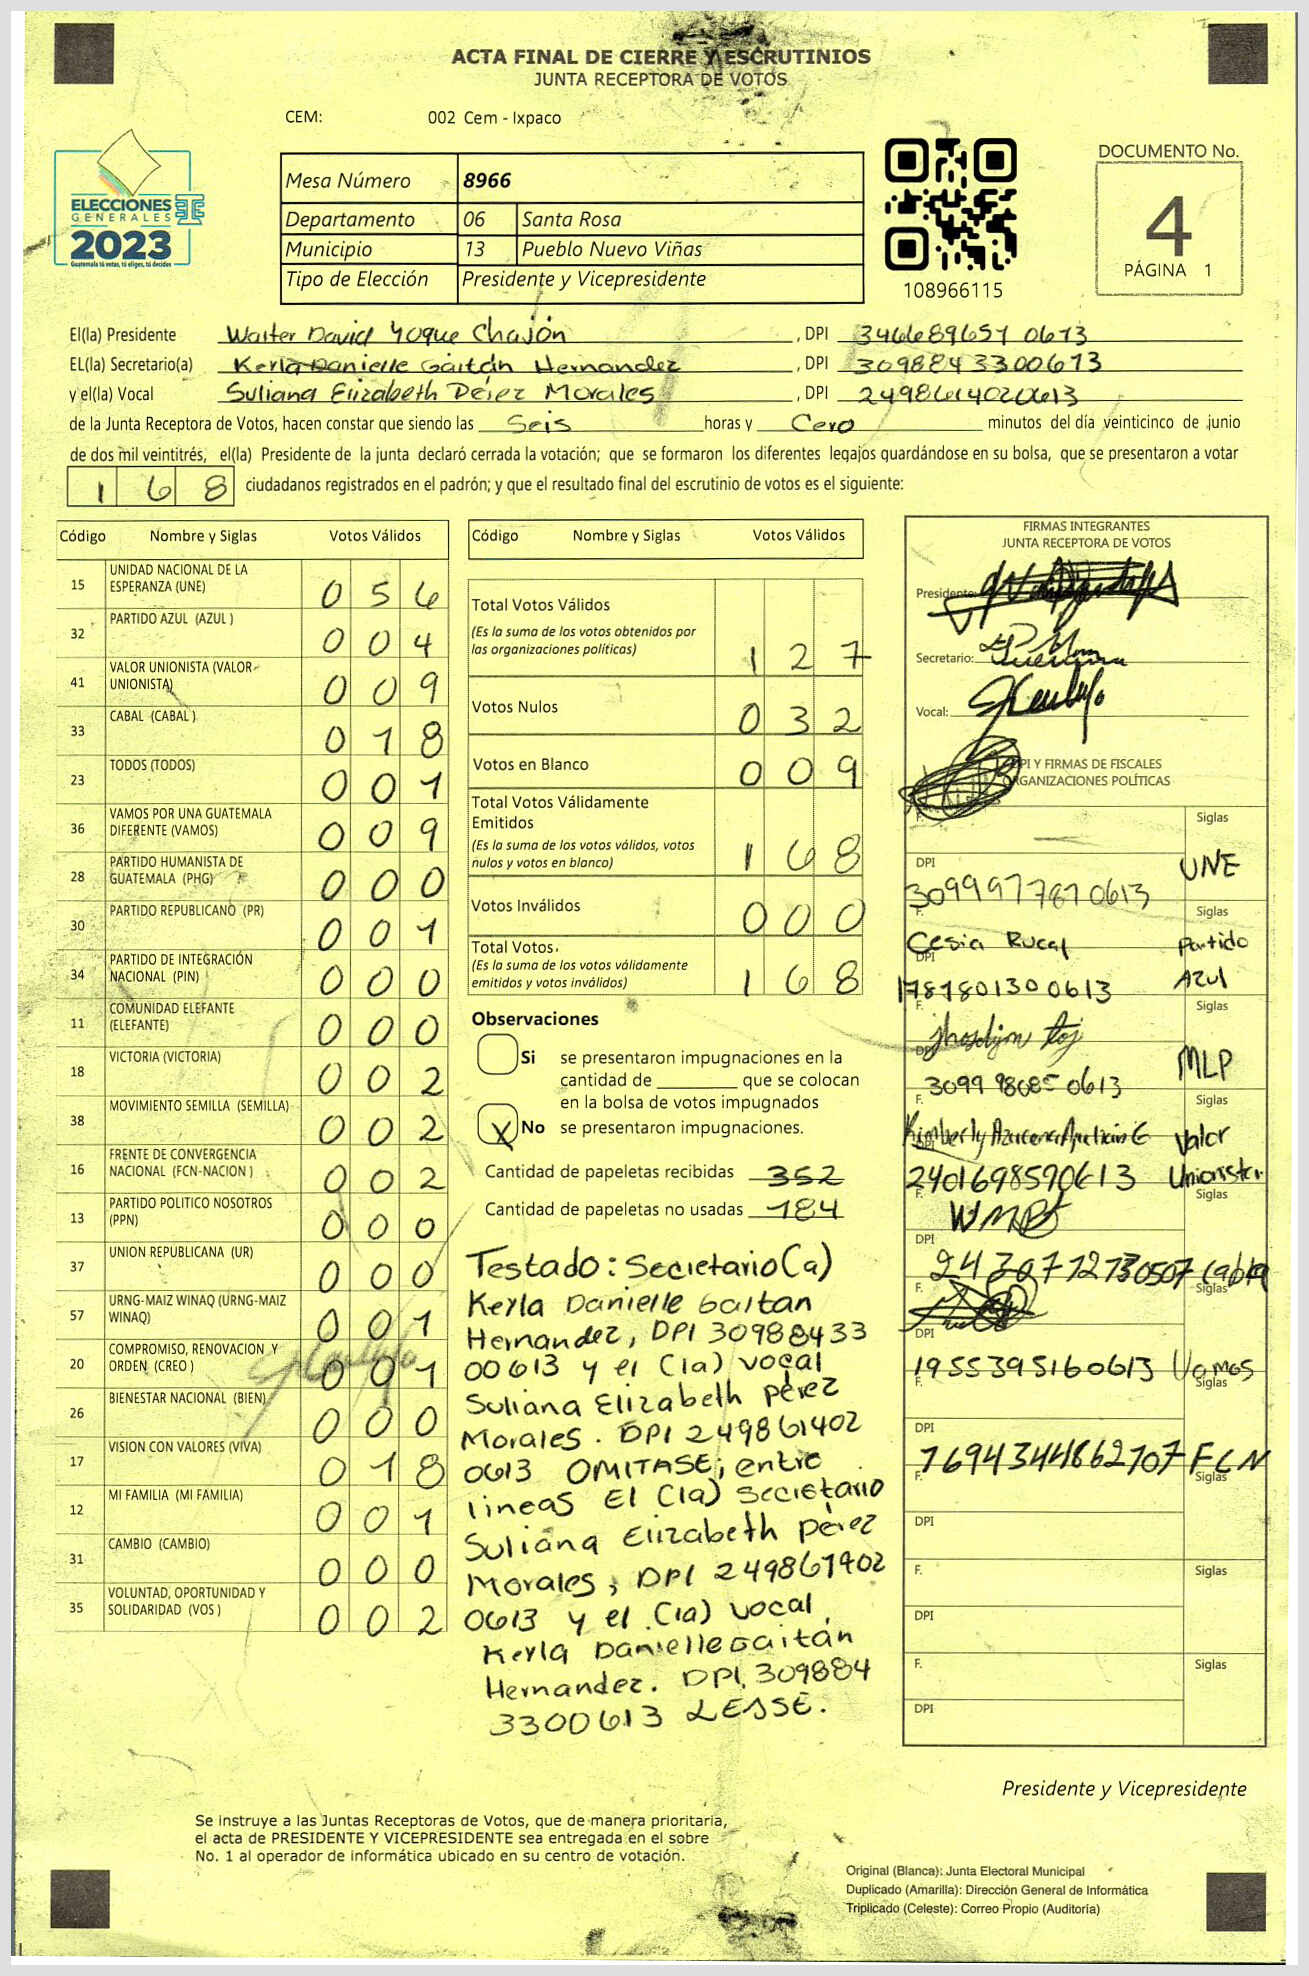 ACTA FINAL DE CIERRE Y ESCRUTINIOS
JUNTA RECEPTORA DE VOTOS
CEM: 002 Cem - Ixpaco
ELECCIONES
GENERALES
2023
Guatemala tú votas, tú eliges, tú decides
Mesa Número 8966
Departamento 06 Santa Rosa
Municipio 13 Pueblo Nuevo Viñas
Tipo de Elección Presidente y Vicepresidente
108966115
DOCUMENTO No.
4
PÁGINA 1
El(la) Presidente Walter David Yoque Chajón , DPI 3466896571 0613
EL(la) Secretario(a) Kerla Danielle Gaitán Hernandez , DPI 3098843300613
y el(la) Vocal Suliana Elizabeth Pérez Morales , DPI 2498614020613
de la Junta Receptora de Votos, hacen constar que siendo las Seis horas y Cero minutos del día veinticinco de junio
de dos mil veintitrés, el(la) Presidente de la junta declaró cerrada la votación; que se formaron los diferentes legajos guardándose en su bolsa, que se presentaron a votar
168 ciudadanos registrados en el padrón; y que el resultado final del escrutinio de votos es el siguiente:
Código Nombre y Siglas Votos Válidos
15 UNIDAD NACIONAL DE LA
ESPERANZA (UNE) 0 5 6
32 PARTIDO AZUL (AZUL ) 0 0 4
41 VALOR UNIONISTA (VALOR-
UNIONISTA) 0 0 9
33 CABAL (CABAL ) 0 1 8
23 TODOS (TODOS) 0 0 1
36 VAMOS POR UNA GUATEMALA
DIFERENTE (VAMOS) 0 0 9
28 PARTIDO HUMANISTA DE
GUATEMALA (PHG) 0 0 0
30 PARTIDO REPUBLICANO (PR) 0 0 1
34 PARTIDO DE INTEGRACIÓN
NACIONAL (PIN) 0 0 0
11 COMUNIDAD ELEFANTE
(ELEFANTE) 0 0 0
18 VICTORIA (VICTORIA) 0 0 2
38 MOVIMIENTO SEMILLA (SEMILLA) 0 0 2
16 FRENTE DE CONVERGENCIA
NACIONAL (FCN-NACION ) 0 0 2
13 PARTIDO POLITICO NOSOTROS
(PPN) 0 0 0
37 UNION REPUBLICANA (UR) 0 0 0
57 URNG-MAIZ WINAQ (URNG-MAIZ
WINAQ) 0 0 1
20 COMPROMISO, RENOVACION Y
ORDEN (CREO ) 0 0 1
26 BIENESTAR NACIONAL (BIEN) 0 0 0
17 VISION CON VALORES (VIVA) 0 1 8
12 MI FAMILIA (MI FAMILIA) 0 0 1
31 CAMBIO (CAMBIO) 0 0 0
35 VOLUNTAD, OPORTUNIDAD Y
SOLIDARIDAD (VOS ) 0 0 2
Código Nombre y Siglas Votos Válidos
Total Votos Válidos
(Es la suma de los votos obtenidos por
las organizaciones políticas) 1 2 7
Votos Nulos 0 3 2
Votos en Blanco 0 0 9
Total Votos Válidamente
Emitidos
(Es la suma de los votos válidos, votos
nulos y votos en blanco) 1 6 8
Votos Inválidos 0 0 0
Total Votos.
(Es la suma de los votos válidamente
emitidos y votos inválidos) 1 6 8
Observaciones
Si se presentaron impugnaciones en la
cantidad de ________ que se colocan
en la bolsa de votos impugnados
X No se presentaron impugnaciones.
Cantidad de papeletas recibidas 352
Cantidad de papeletas no usadas 184
Testado: Secretario(a)
Kerla Danielle Gaitan
Hernandez, DPI 30988433
00613 y el (la) vocal
Suliana Elizabeth Pérez
Morales. DPI 249861402
0613 OMITASE; entre
lineas El (la) Secretario
Suliana Elizabeth Pérez
Morales, DPI 249861402
0613 y el (la) vocal
Kerla Danielle Gaitán
Hernandez. DPI. 309884
3300613 LEASE.
FIRMAS INTEGRANTES
JUNTA RECEPTORA DE VOTOS
Presidente:
Secretario:
Vocal:
DPI Y FIRMAS DE FISCALES
ORGANIZACIONES POLÍTICAS
F. Siglas
DPI UNE
3099977870613
F. Siglas
Cesia Rucal Partido
DPI Azul
1781801300613
F. Siglas
Jhoselyn Coj
DPI MLP
3099 98085 0613
F. Siglas
Kimberly Azucena
DPI Valor
2401698590613 Unionista
F. Siglas
DPI
2430712730507 Cabal
F. Siglas
DPI
1955395160613 Vamos
F. Siglas
DPI
1694344862707 FCN
F. Siglas
DPI
F. Siglas
DPI
F. Siglas
DPI
Presidente y Vicepresidente
Se instruye a las Juntas Receptoras de Votos, que de manera prioritaria,
el acta de PRESIDENTE Y VICEPRESIDENTE sea entregada en el sobre
No. 1 al operador de informática ubicado en su centro de votación.
Original (Blanca): Junta Electoral Municipal
Duplicado (Amarilla): Dirección General de Informática
Triplicado (Celeste): Correo Propio (Auditoría)